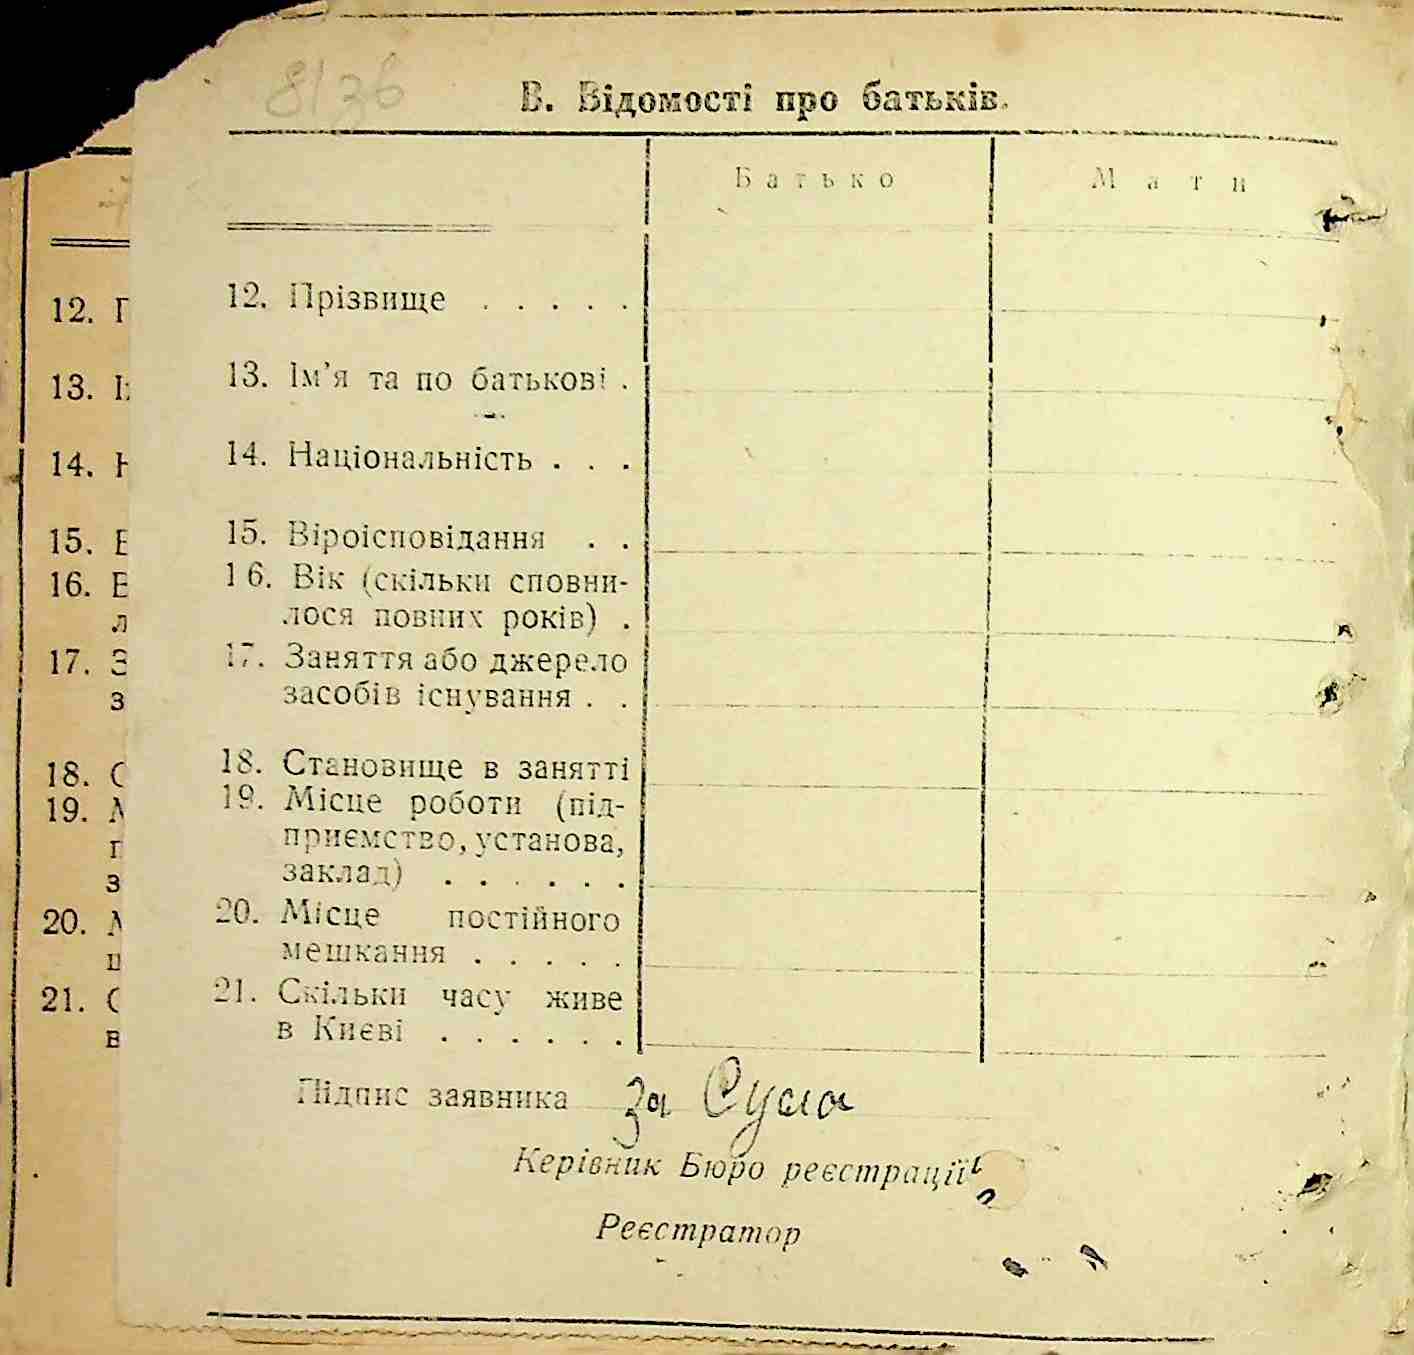 8/зв
В. Відомості про батьків.
Батько Мати
12. Прізвище . . . . .
13. Ім'я та по батькові .
14. Національність . . .
15. Віроісповідання . .
16. Вік (скільки сповни-
лося повних років) .
17. Заняття або джерело
засобів існування . .
18. Становище в занятті
19. Місце роботи (під-
приємство, установа,
заклад) . . . . . .
20. Місце постійного
мешкання . . . . .
21. Скільки часу живе
в Києві . . . . . .
Підпис заявника за Сула
Керівник Бюро реєстрації
Реєстратор
12.
13.
14.
15.
16.
17.
18.
19.
20.
21.